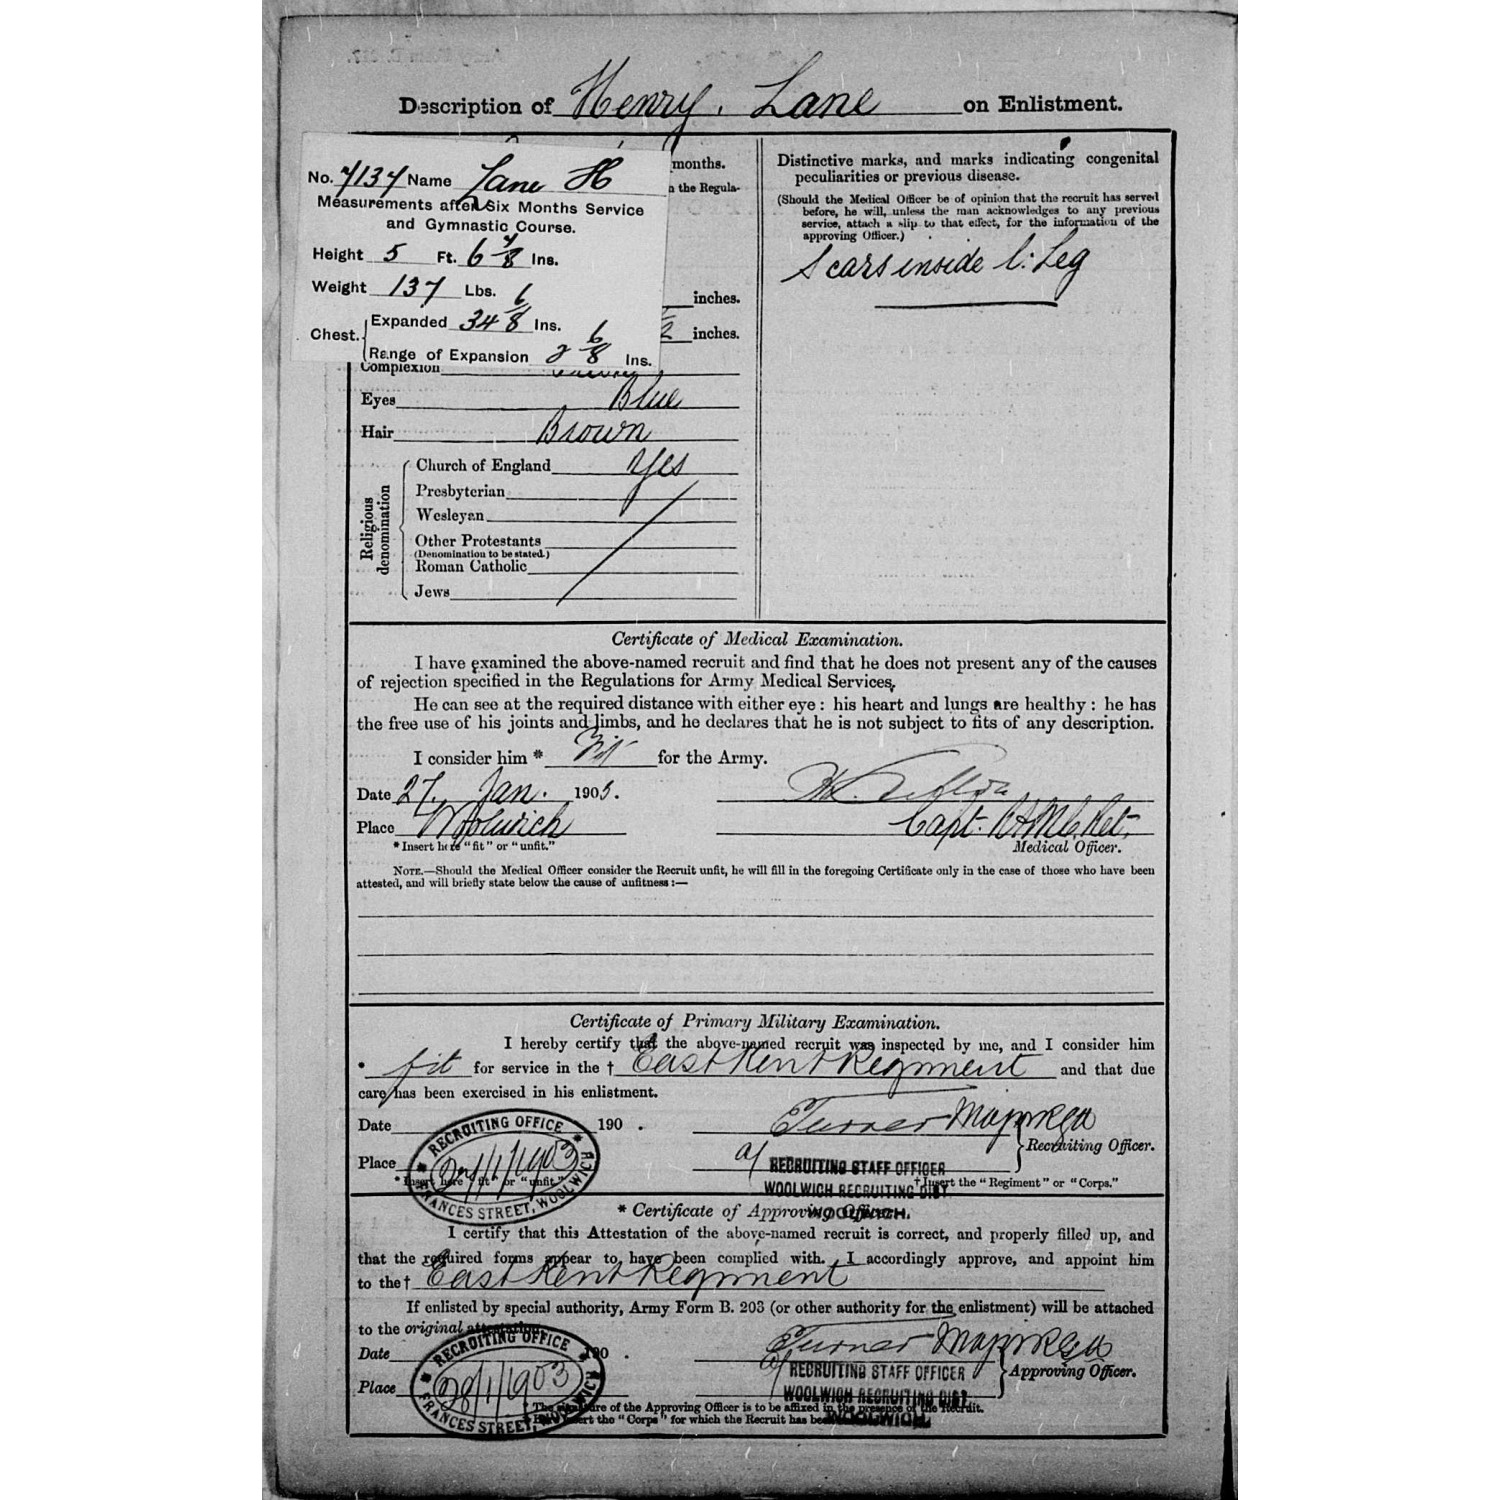 Description of Henry. Lane on Enlistment.
No. 7137 Name Lane H
Measurements after Six Months Service
and Gymnastic Course.
Height 5 Ft. 6 7/8 Ins.
Weight 137 Lbs.
Chest. Expanded 34 6/8 Ins.
Range of Expansion 2 6/8 Ins.
months.
the Regula-
inches.
inches.
Complexion
Eyes Blue
Hair Brown
Religious denomination
Church of England Yes
Presbyterian
Wesleyan
Other Protestants
(Denomination to be stated.)
Roman Catholic
Jews
Distinctive marks, and marks indicating congenital
peculiarities or previous disease.
(Should the Medical Officer be of opinion that the recruit has served
before, he will, unless the man acknowledges to any previous
service, attach a slip to that effect, for the information of the
approving Officer.)
Scars inside l: Leg
Certificate of Medical Examination.
I have examined the above-named recruit and find that he does not present any of the causes
of rejection specified in the Regulations for Army Medical Services.
He can see at the required distance with either eye : his heart and lungs are healthy : he has
the free use of his joints and limbs, and he declares that he is not subject to fits of any description.
I consider him * Fit for the Army.
Date 27. Jan. 1903.
Place Woolwich
Capt. RAMC Ret.
* Insert here "fit" or "unfit."
Medical Officer.
NOTE.—Should the Medical Officer consider the Recruit unfit, he will fill in the foregoing Certificate only in the case of those who have been
attested, and will briefly state below the cause of unfitness :—
Certificate of Primary Military Examination.
I hereby certify that the above-named recruit was inspected by me, and I consider him
* fit for service in the † East Kent Regiment and that due
care has been exercised in his enlistment.
Date 190 .
Turner Major RGA
Recruiting Officer.
Place
RECRUITING OFFICE
28/1/1903
FRANCES STREET, WOOLWICH
RECRUITING STAFF OFFICER
WOOLWICH RECRUITING DIST.
WOOLWICH.
* Insert here "fit" or "unfit."
† Insert the "Regiment" or "Corps."
* Certificate of Approving Officer.
I certify that this Attestation of the above-named recruit is correct, and properly filled up, and
that the required forms appear to have been complied with. I accordingly approve, and appoint him
to the† East Kent Regiment
If enlisted by special authority, Army Form B. 203 (or other authority for the enlistment) will be attached
to the original attestation.
Date 190 .
Turner Major RGA
Approving Officer.
Place
RECRUITING OFFICE
28/1/1903
FRANCES STREET, WOOLWICH
RECRUITING STAFF OFFICER
WOOLWICH RECRUITING DIST.
WOOLWICH.
* The signature of the Approving Officer is to be affixed in the presence of the Recruit.
insert the "Corps" for which the Recruit has been